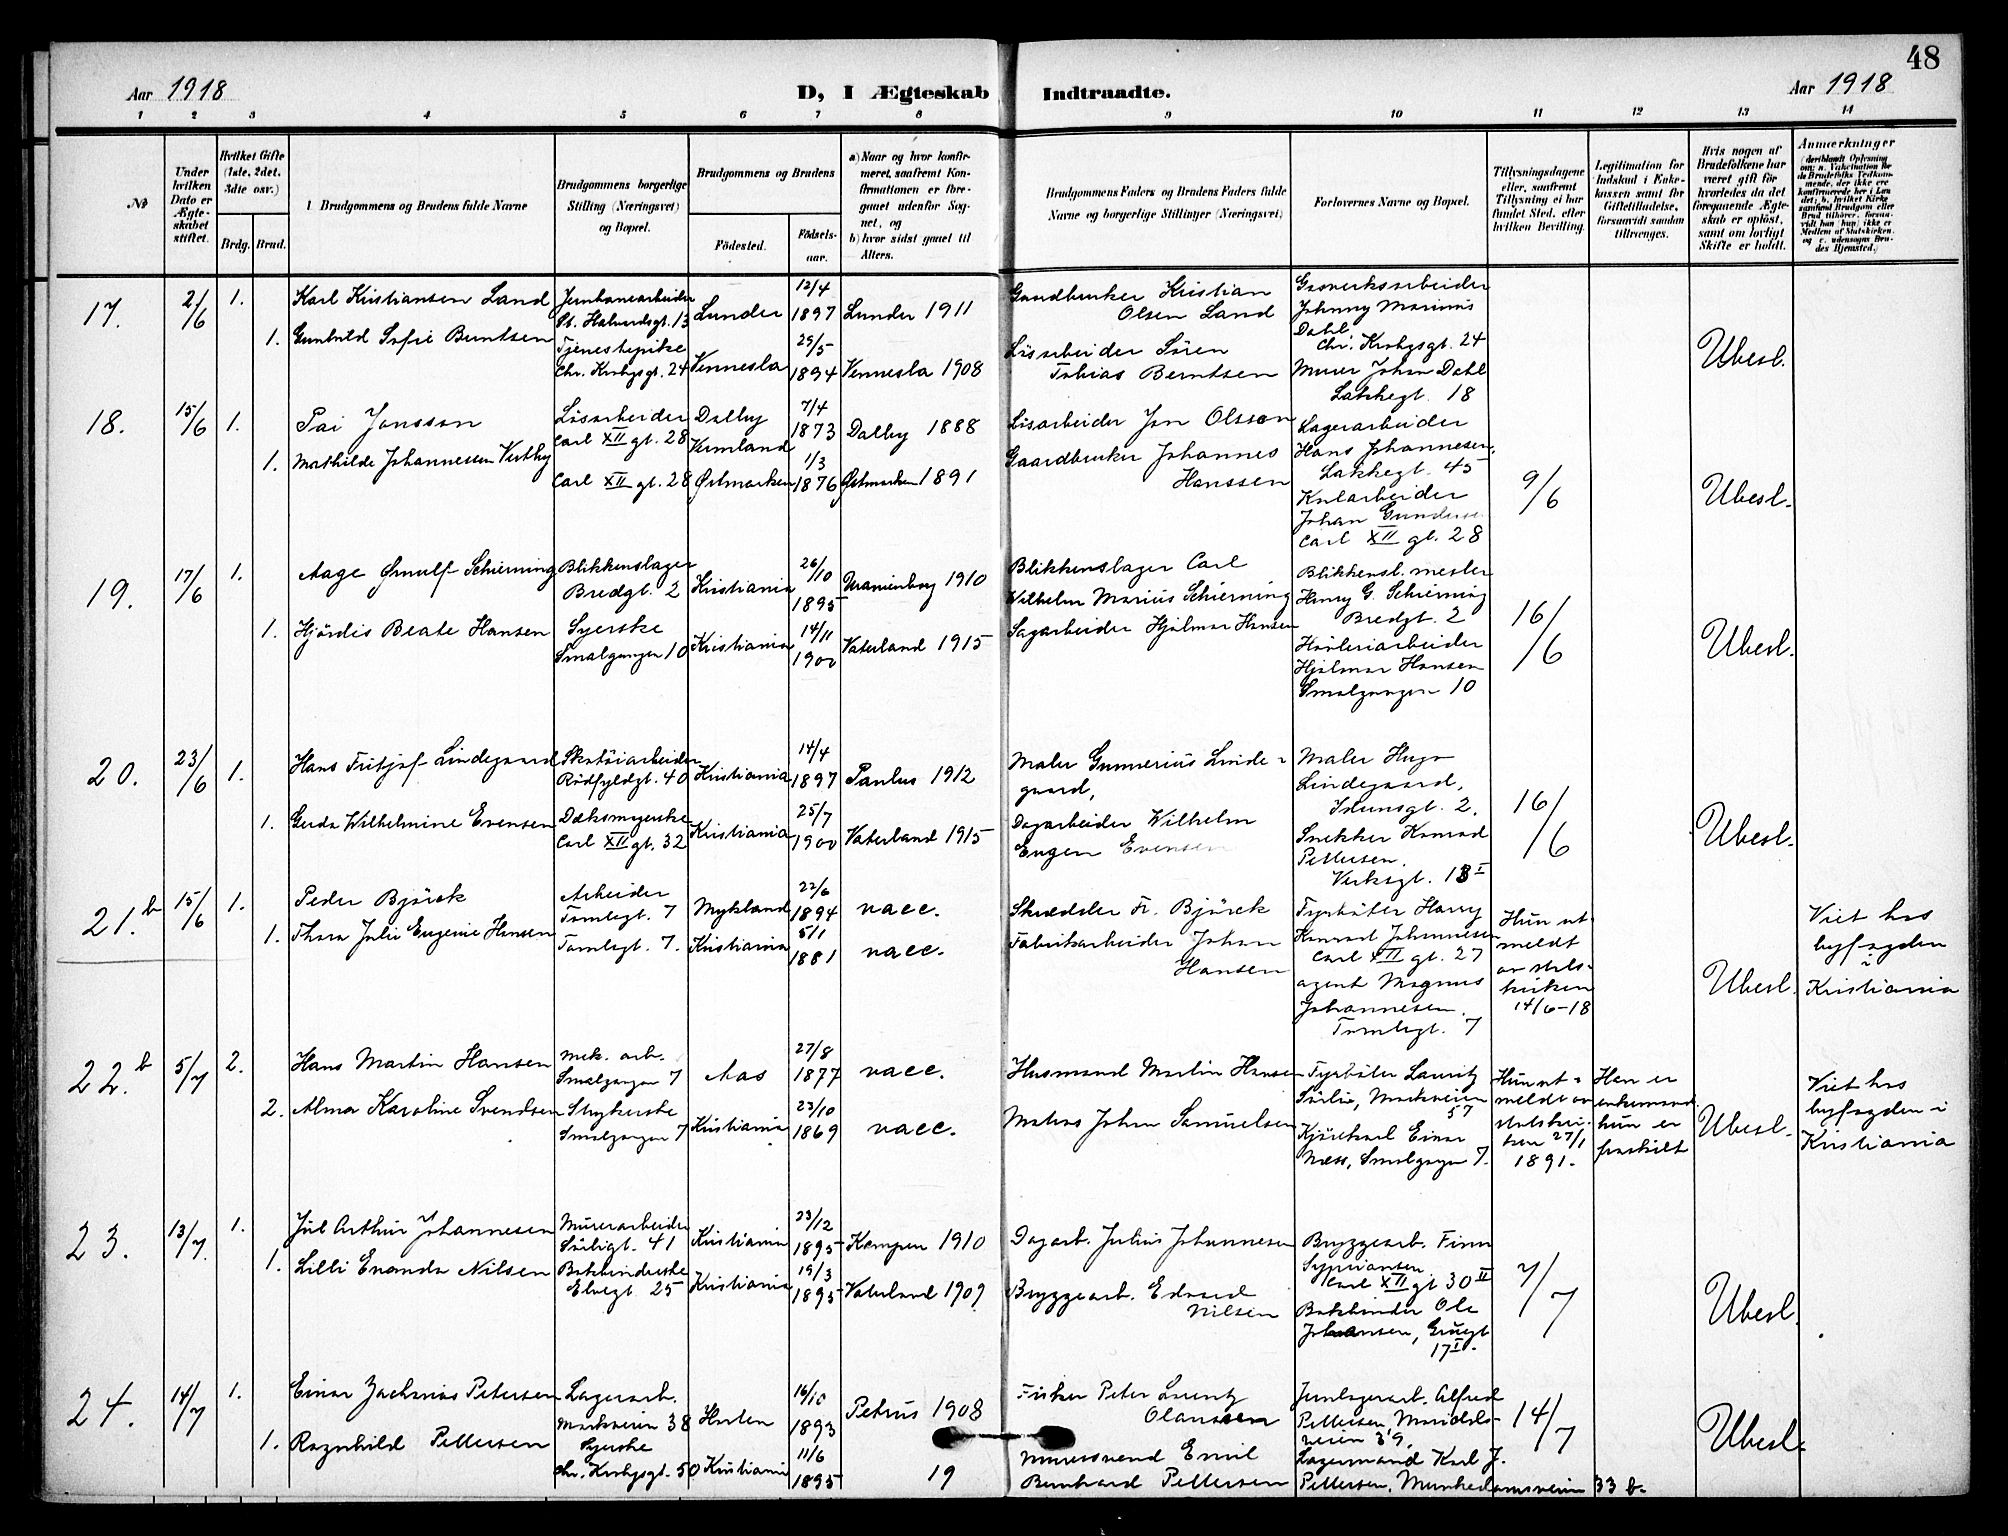 48
Aar 1918
D, I Ægteskab Indtraadte.
Aar 1918
1 2 3 4 5 6 7 8 9 10 11 12 13 14
No
Under hvilken Dato er Ægteskabet stiftet.
Hvilket Gifte (1ste, 2det, 3dte osv.)
Brdg. Brud.
Brudgommens og Brudens fulde Navne
Brudgommens borgerlige Stilling (Næringsvei) og Bopæl.
Brudgommens og Brudens
Fødested.
Fødselsaar.
a) Naar og hvor konfirmeret, saafremt Konfirmationen er foregaaet udenfor Sognet, og
b) hvor sidst gaaet til Alters.
Brudgommens Faders og Brudens Faders fulde Navne og borgerlige Stillinger (Næringsvei)
Forlovernes Navne og Bopæl.
Tillysningsdagene eller, saafremt Tillysning ei har fundet Sted, efter hvilken Bevilling.
Legitimation for Indskud i Enkekassen samt for Giftetilladelse, forsaavidt saadan tiltrænges.
Hvis nogen af Brudefolkene har været gift før hvorledes da det foregaaende Ægteskab er opløst, samt om lovligt Skifte er holdt.
Anmærkninger
17.
2/6
1.
Karl Kristiansen Land
Jernbanearbeider
St. Halvardsgt. 13
Lunder
12/4
1897
Lunder 1911
Gaardbruker Kristian
Olsen Land
Gasverksarbeider
Johnny Marinius
Dahl
Chr. Krohgsgt. 24
1.
Gunhild Sofie Berntsen
Tjenestepike
Chr. Krohgsgt. 24
Vennesla
25/5
1894
Vennesla 1908
Løsarbeider Sören
Tobias Berntsen
Murer Johan Dahl
Lakkegt. 18
Ubesl.
18.
15/6
1.
Pai Jonsson
Løsarbeider
Carl XII gt. 28
Dalby
Vermland
7/4
1873
Dalby 1888
Løsarbeider Jon Olsson
Lagerarbeider
Hans Johannesen,
Lakkegt. 45
1.
Mathilde Johannesen Vestby
Carl XII gt. 28
Østmarken
1/3
1876
Østmarken 1891
Gaardbruker Johannes
Hanssen
Kularbeider
Johan
Carl XII gt. 28
9/6
Ubesl.
19.
17/6
1.
Aage Ørnulf Schierning
Blikkenslager
Bredgt. 2
Kristiania
26/10
1895
Uranienborg 1910
Blikkenslager Carl
Wilhelm Marius Schierning
Blikkensl.mester
Henry G. Schierning
Bredgt. 2
1.
Hjördis Beate Hansen
Syerske
Smalgangen 10
Kristiania
14/11
1900
Vaterland 1915
Sagarbeider Hjalmar Hansen
Høvleriarbeider
Hjalmar Hansen
Smalgangen 10
16/6
Ubesl.
20.
23/6
1.
Hans Fritjof Lindegaard
Skotøiarbeider
Rödfyldgt. 40
Kristiania
14/4
1897
Paulus 1912
Maler Gunnerius Lindegaard,
Maler Hugo
Lindegaard,
Idunsgt. 2.
1.
Gerda Wilhelmine Evensen
Carl XII gt. 32
Kristiania
25/7
1900
Vaterland 1915
Dagarbeider Wilhelm
Eugen Evensen
Snekker Konrad
Pettersen.
Verksgt. 13 I
16/6
Ubesl.
21.b
15/6
1.
Peder Björck
Arbeider
Tomtegt. 7
Mykland
22/6
1894
vacc.
Skrædder Fr. Björck
Fyrbøter Harry
Konrad Johannesen
Carl XII gt. 27
1.
Thora Julie Eugenie Hansen
Tomtegt. 7.
Kristiania
5/1
1881
vacc.
Fabrikarbeider Johan
Hansen
agent Magnus
Johannesen.
Tomtegt. 7
Hun utmeldt
av statskirken
14/6-18
Ubesl.
Viet hos
byfogden
i
Kristiania
22.b
5/7
2.
Hans Martin Hansen
Mek. arb.
Smalgangen 7
Aas
27/8
1877
vacc.
Husmand Martin Hansen
Fyrbøter Lauritz
Sörlie, Markveien
57
2.
Alma Karoline Svendsen
Strykerske
Smalgangen 7
Kristiania
23/10
1869
vacc.
Matros Johan Samuelsen
Kjørekarl Einar
Næss, Smalgangen 7.
Hun utmeldt av
statskirken 27/1
1891.
Han er
enkemand
hun er
fraskilt
Ubesl.
Viet hos
byfogden i
Kristiania
23.
13/7.
1.
Jul Arthur Johannesen
Murerarbeider
Sörligt. 41
Kristiania
23/12
1895
Kampen 1910
Dagarb. Julius Johannesen
Bryggearb. Finn
Carl XII gt 30 II
1.
Lilli Evanda Nilsen
Bokbinderske
Elvegt 25
Kristiania
19/3
1895
Vaterland 1909
Bryggearb. Edvard
Nilsen
Bokbinder Ole
Johansen,
17 I.
7/7
Ubesl.
24.
14/7
1.
Einar Zacharias Petersen
Lagerarb.
Markveien 38
Horten
16/10
1893
Petrus 1908
Fisker Peter Lauritz
Olanssen
Jernlagerarb. Alfred
Pettersen, Maridalsveien 39.
1.
Ragnhild Pettersen
Syerske
Chr. Krohgsgt. 50
Kristiania
11/6
1895
19
Murersvend Emil
Bernhard Pettersen
Lagermand Karl J.
Pettersen, Munkedamsveien 33 b.
14/7
Ubesl.